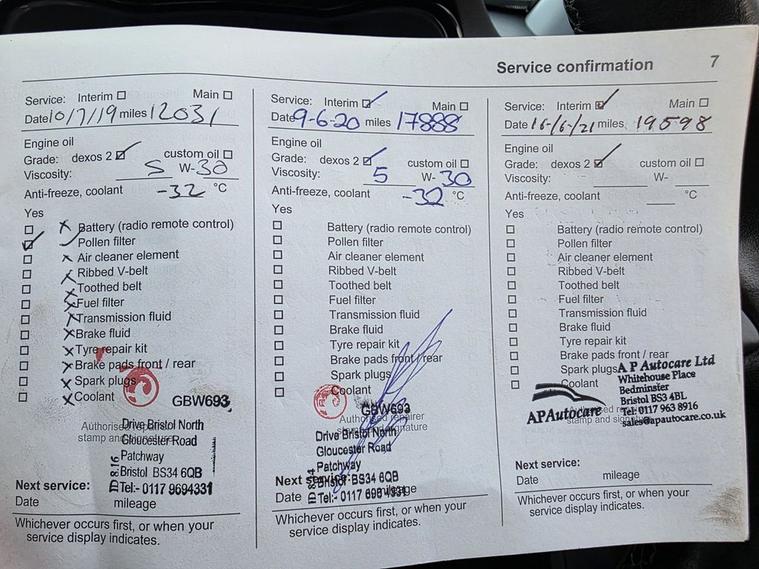 Service confirmation 7
Service: Interim Main
Date 10/7/19 miles 12031
Engine oil
Grade: dexos 2 custom oil
Viscosity: 5 W-30
Anti-freeze, coolant -32 °C
Yes
Battery (radio remote control)
Pollen filter
Air cleaner element
Ribbed V-belt
Toothed belt
Fuel filter
Transmission fluid
Brake fluid
Tyre repair kit
Brake pads front / rear
Spark plugs
Coolant
GBW693
Authorised repairer
stamp and signature
Drive Bristol North
Gloucester Road
Patchway
Bristol BS34 6QB
Tel:- 0117 9694331
Next service:
Date mileage
Whichever occurs first, or when your
service display indicates.
Service: Interim Main
Date 9-6-20 miles 17888
Engine oil
Grade: dexos 2 custom oil
Viscosity: 5 W-30
Anti-freeze, coolant -32 °C
Yes
Battery (radio remote control)
Pollen filter
Air cleaner element
Ribbed V-belt
Toothed belt
Fuel filter
Transmission fluid
Brake fluid
Tyre repair kit
Brake pads front / rear
Spark plugs
Coolant
GBW693
Authorised repairer
stamp and signature
Drive Bristol North
Gloucester Road
Patchway
Bristol BS34 6QB
Tel:- 0117 9694331
Next service:
Date mileage
Whichever occurs first, or when your
service display indicates.
Service: Interim Main
Date 16/6/21 miles 19598
Engine oil
Grade: dexos 2 custom oil
Viscosity: W-
Anti-freeze, coolant °C
Yes
Battery (radio remote control)
Pollen filter
Air cleaner element
Ribbed V-belt
Toothed belt
Fuel filter
Transmission fluid
Brake fluid
Tyre repair kit
Brake pads front / rear
Spark plugs
Coolant
A P Autocare Ltd
Whitehouse Place
Bedminster
Bristol BS3 4BL
Tel: 0117 963 8916
sales@apautocare.co.uk
APAutocare
stamp and signature
Next service:
Date mileage
Whichever occurs first, or when your
service display indicates.